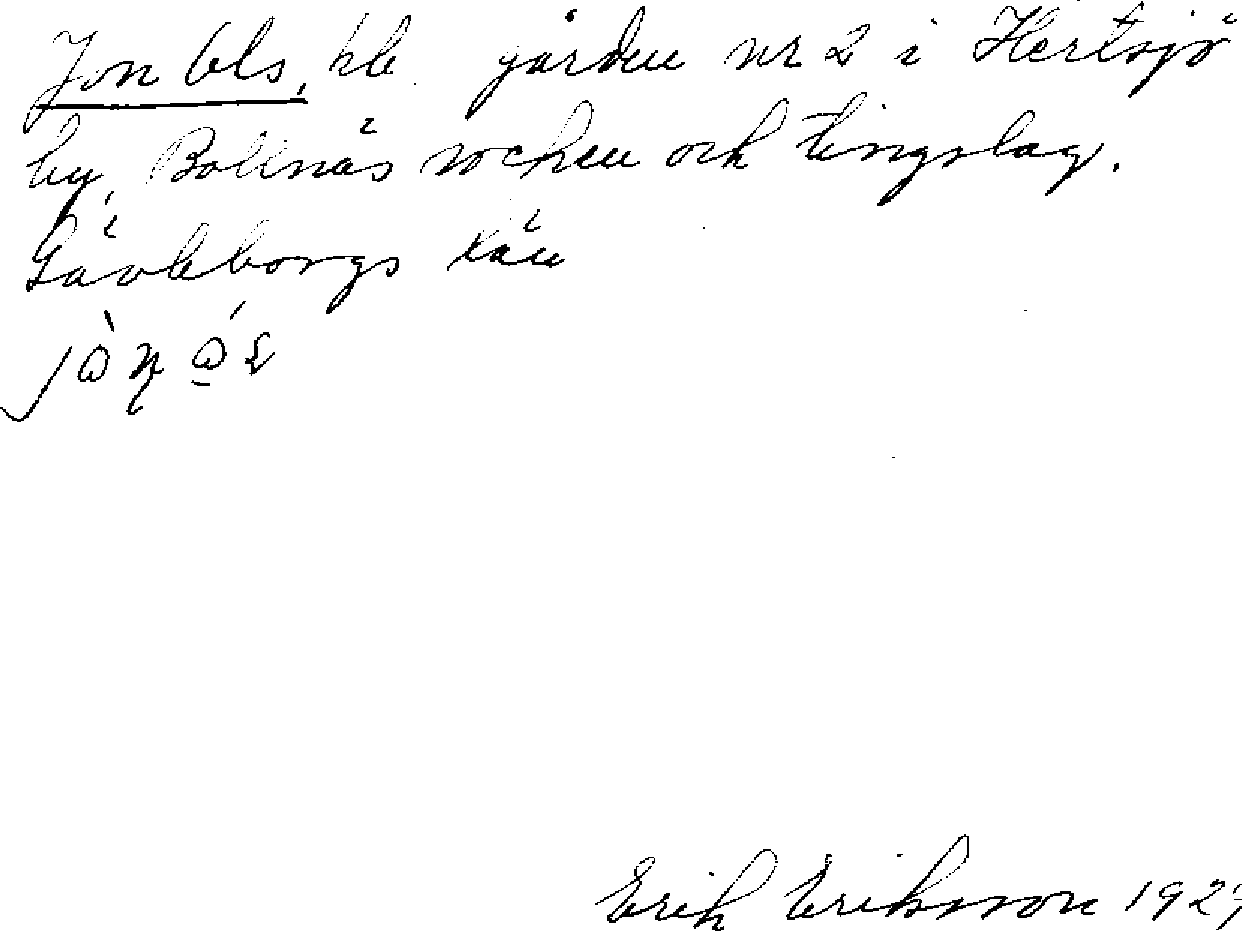 Jon Ols, kb. gården nr 2 i Hertsjö
by, Bollnäs socken och tingslag.
Gävleborgs län
Erik Eriksson 192